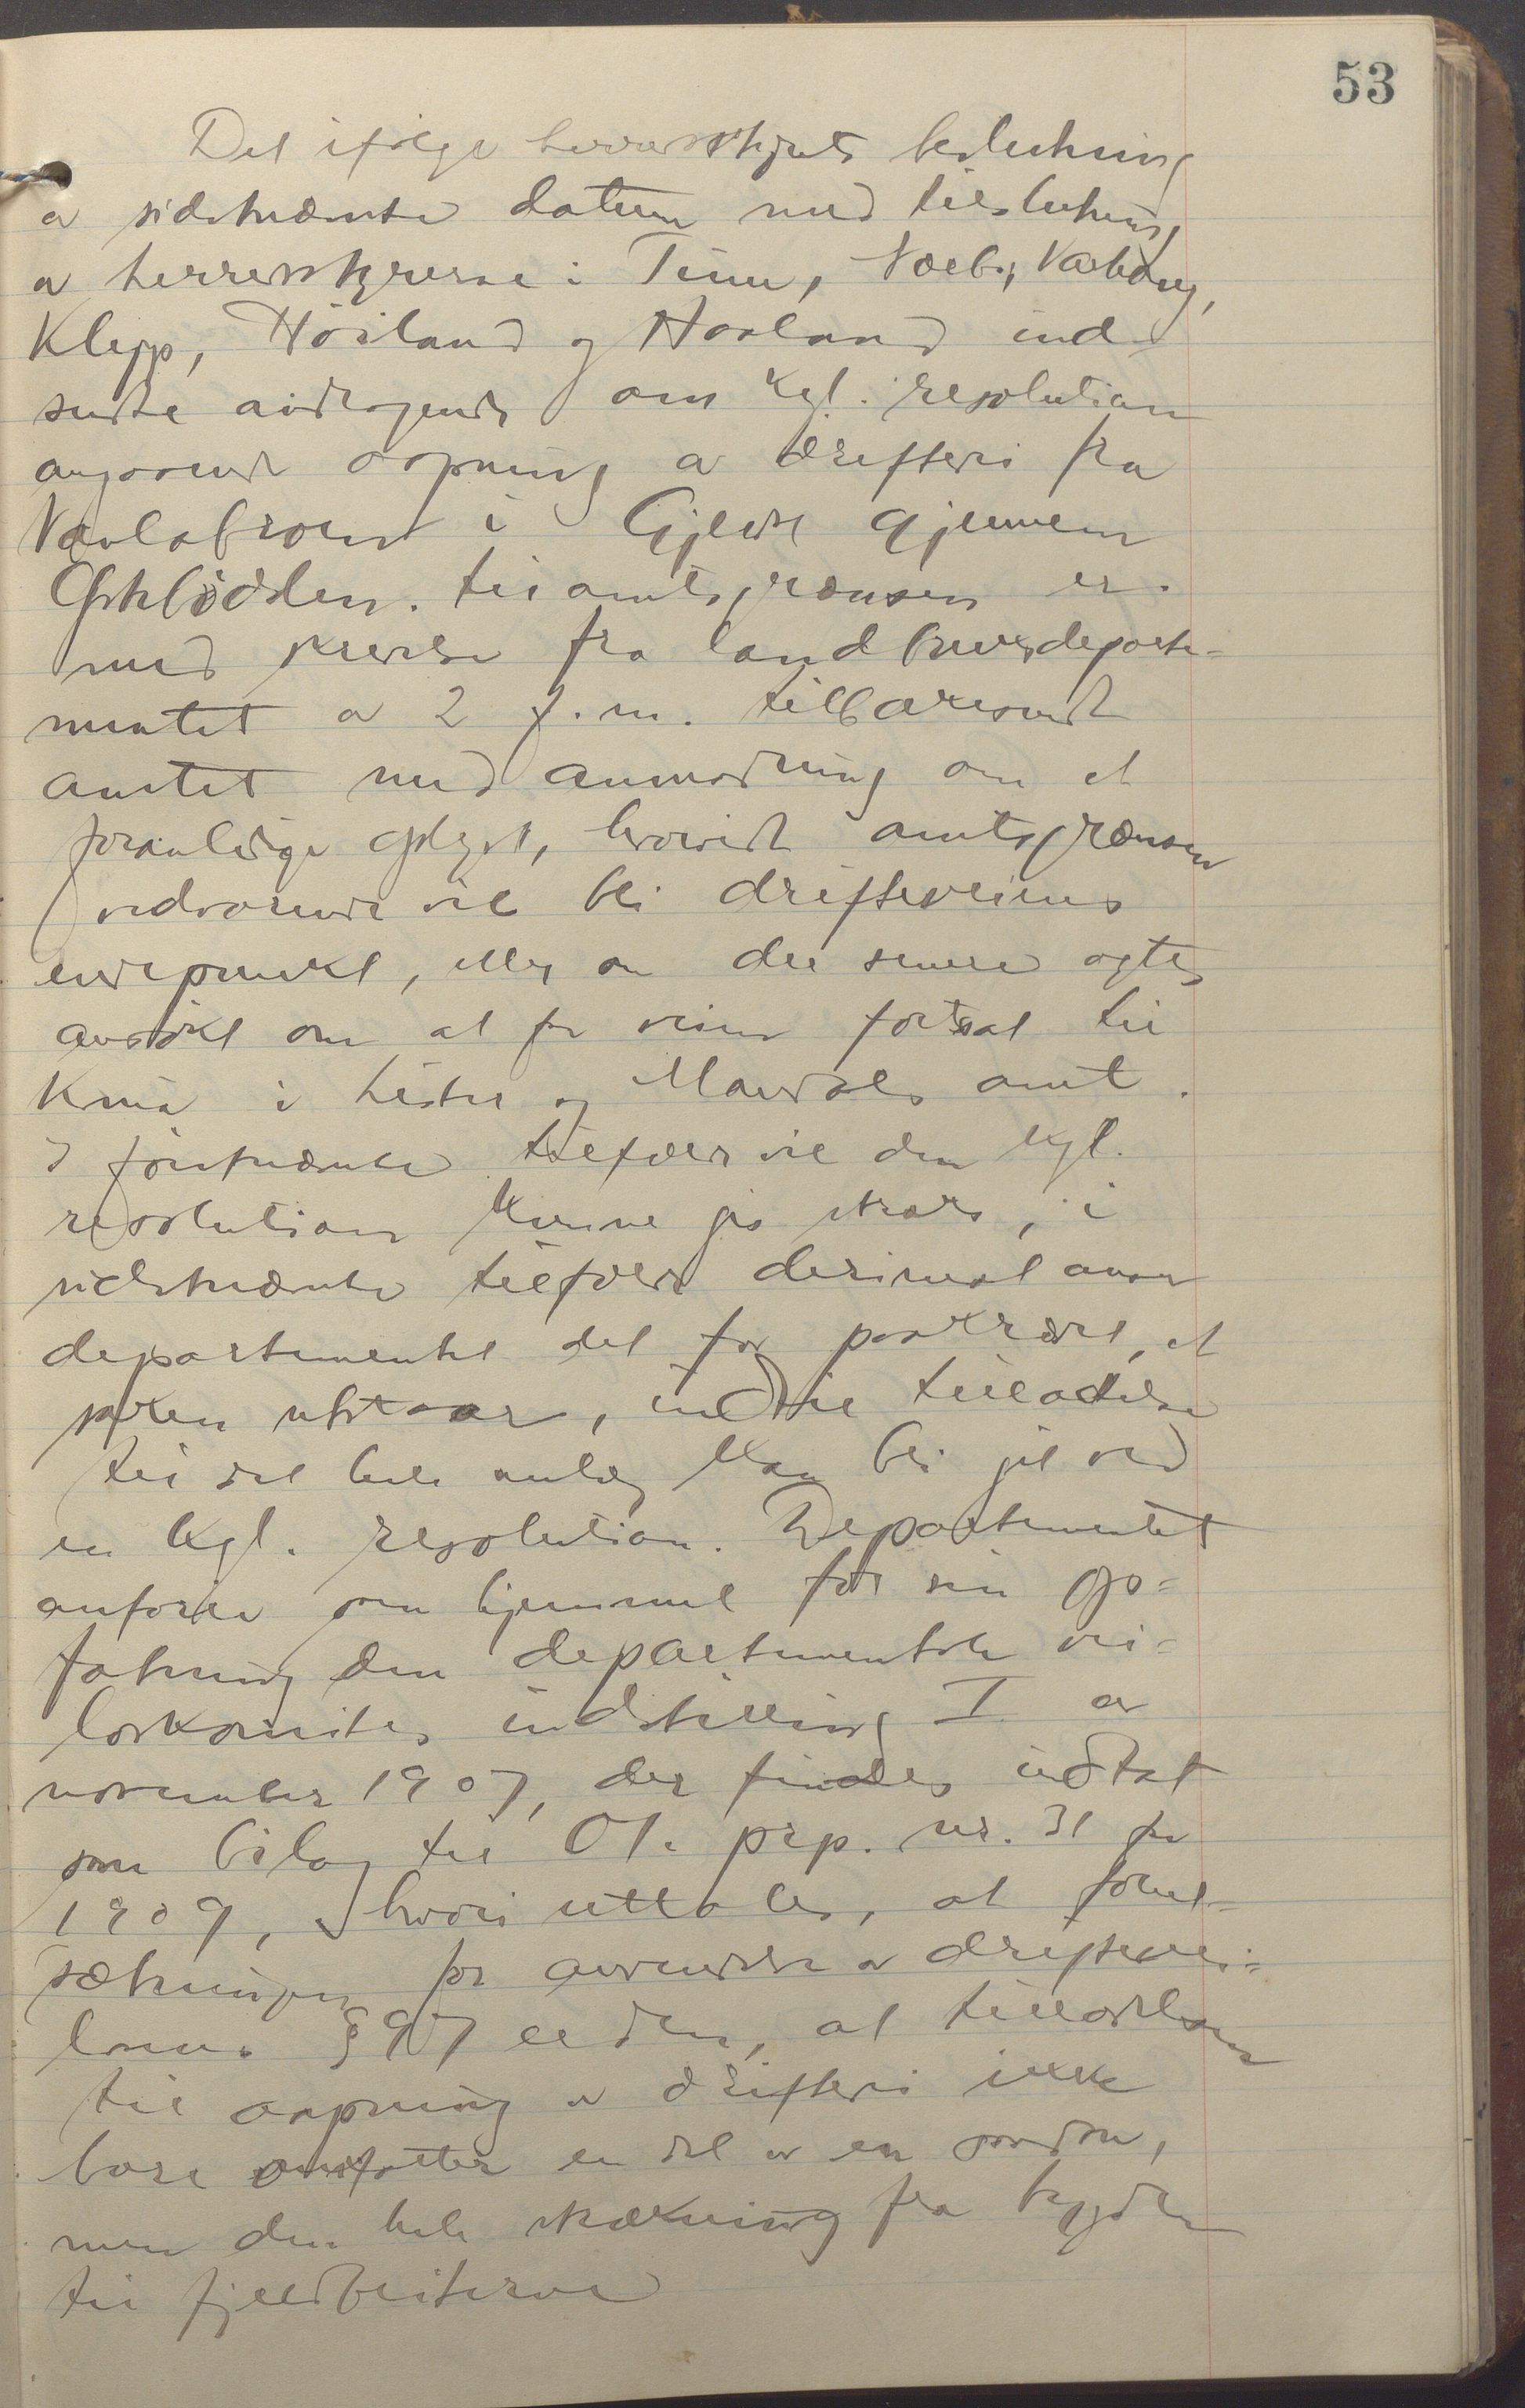 53
Det ifølge herredsstyrets beslutning
a sidstnævnte datum med tilslutning
a herredsstyrerne i Time, Nærbø, Varhaug,
Klepp, Höiland og Haaland ind-
sendte andragende om kgl. resolution
angaaende aapning a driftevei fra
Navlabroen i Gjesdal gjennem
til amtsgrænsen er
med skrivelse fra landbruksdeparte-
mentet a 2 f.m. tilbakesendt
amtet med anmodning om et
foranledige oplyst, hvorvidt amtsgrænsen
vedvarende vil bli drifteveiens
endepunkt, eller om der senere agtes
ansökt om at faa veien fortsat til
i Lister og Mandals amt.
I förstnævnte tilfælde vil den kgl.
resolution kunne gis straks, i
sidstnævnte tilfælde derimot anser
departementet det for paakrævet, at
saken utstaar, indtil tilladelse
til det hele anlæg kan bli git ved
en kgl. resolution. Departementet
anfører som hjemmel for sin op-
fatning den departementale vei-
lovkomites indstilling I a
november 1907, der findes indtat
som bilag til Ot. prp. nr. 31 for
1909, hvori uttales, at forut-
sætningen for anvendelse a driftevei-
lovens § 97 er den, at tilladelsen
til aapning a driftevei ikke
bare omfatter en del av en saadan,
men den hele strækning fra bygden
til fjeldbeiterne